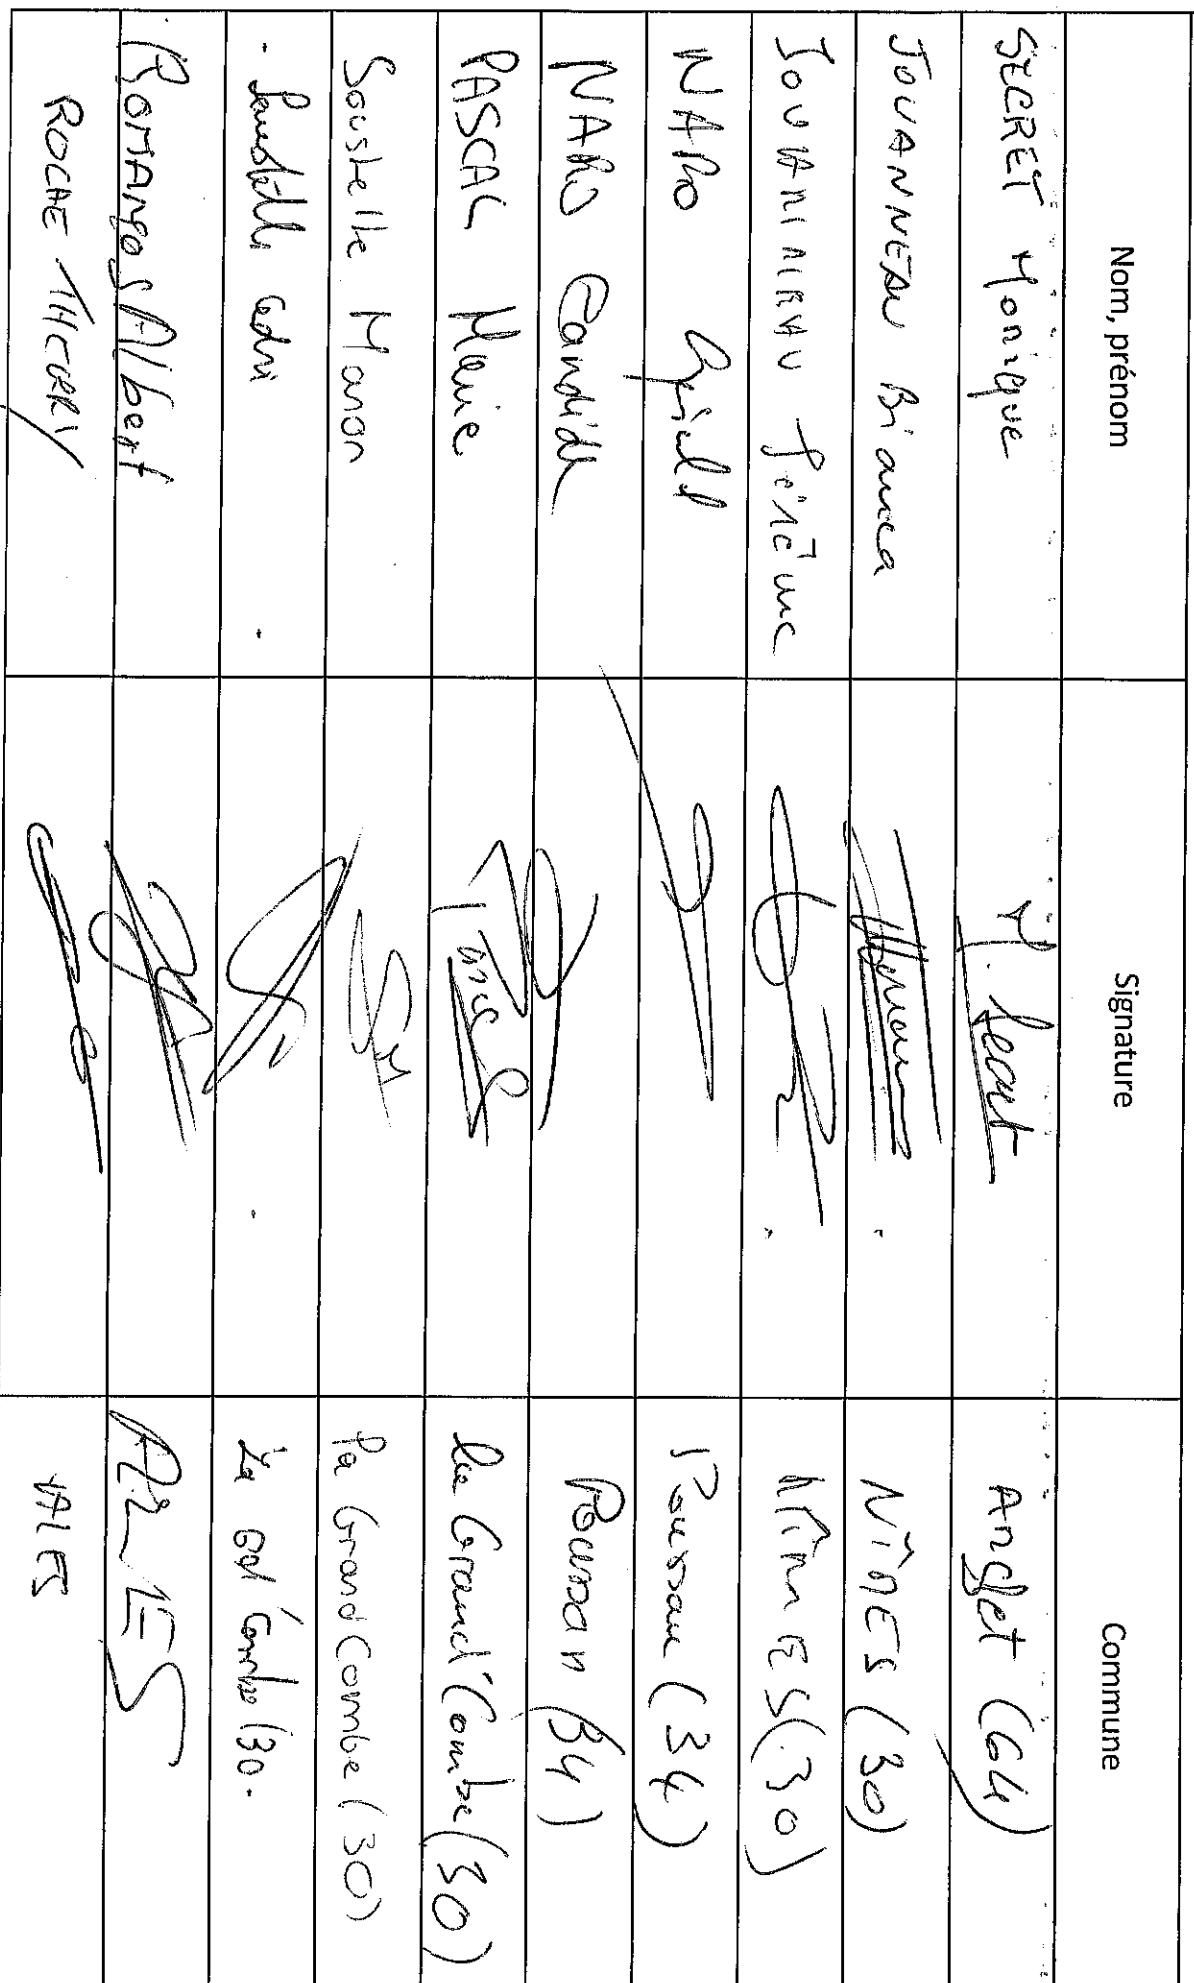 Nom, prénom Signature Commune
SECRET Monique M. Secret Anglet (64)
JOUANNEAU Bianca NîMES (30)
JOUANNEAU Jérémie NîMES (30)
NARO Poussan (34)
NARO Candide Poussan (34)
PASCAL Marie La Grand'Combe (30)
Soustelle Manon SM La Grand Combe (30)
Soustelle La Gd Combe (30.
ROMANOS Albert ALES
ROCHE THIERRY ALES